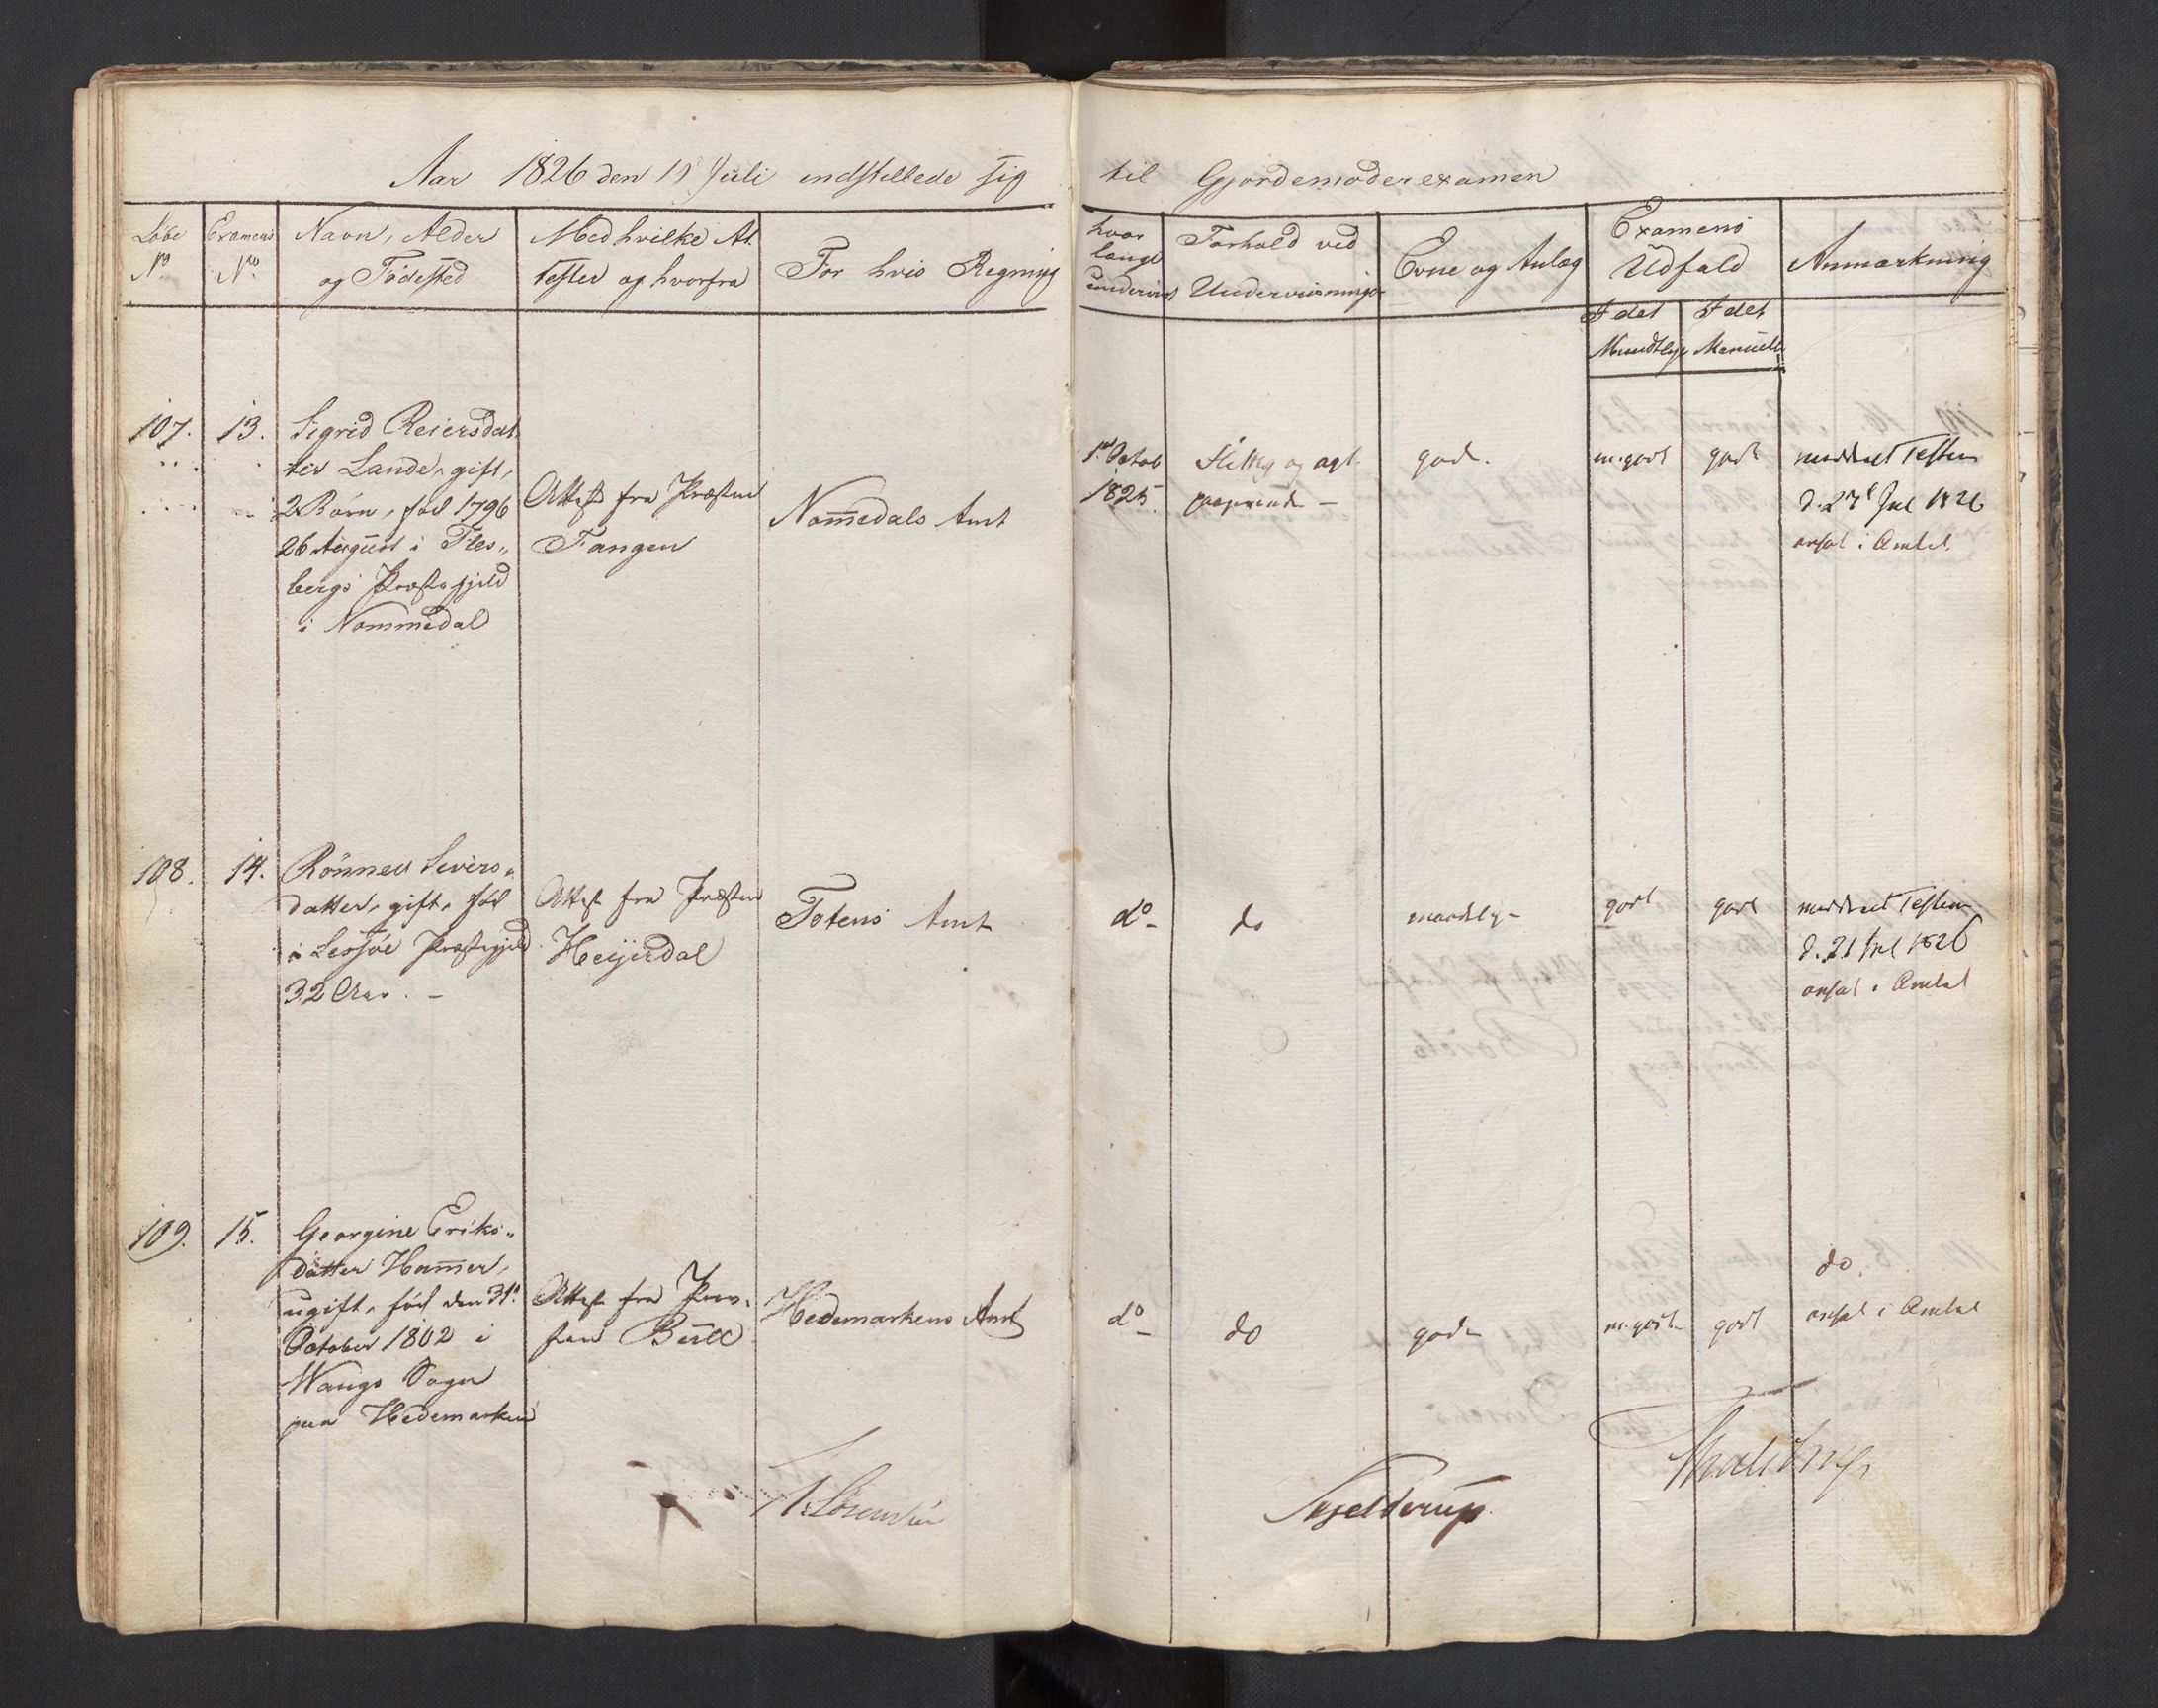 Aar 1826 den 19 Juli indstillede sig til Gjordemoderexamen
Løbe No
Examens No
Navn, Alder
og Födested
Med hvilke At
tester og hvorfra
For hvis Regning
hvor
længe
underviist
Forhold ved
Underviisningen
Evne og Anlæg
Examens
Udfald
I det
Mundtlige
I det
Manuelle
Anmærkning
107.
13.
Sigrid Reiersdat
ter Lande, gift,
2 Börn, föd 1796
26 August i Fles„
bergs Præstegjeld
i Nommedal
Attest fra Præsten
Fangen
Nomedals Amt
1ste Octob
1825.
Flittig og agt
paagivende –
god.
m.godt
godt
meddelt Testim
d. 27 Jul 1826
ansat i Amtet
108.
14.
Rönnev Sivers„
datter, gift, föd
i Lessöe Præstegjeld
32 Aar. –
Attest fra Præsten
Heyerdal
Totens Amt
do
do
maadelig –
godt
godt
meddeelt Testim
d. 21 Jul 1826
ansat i Amtet
109.
15.
Georgine Eriks„
datter Hammer,
ugift, föd den 31
October 1802 i
Wangs Sogn
paa Hedemarken
Attest fra Præs„
sten Bull
Hedemarkens Amt
do
do
god
m.godt
godt
do.
ansat i Amtet
N. Sörensen
Skjelderup
Thulstrup